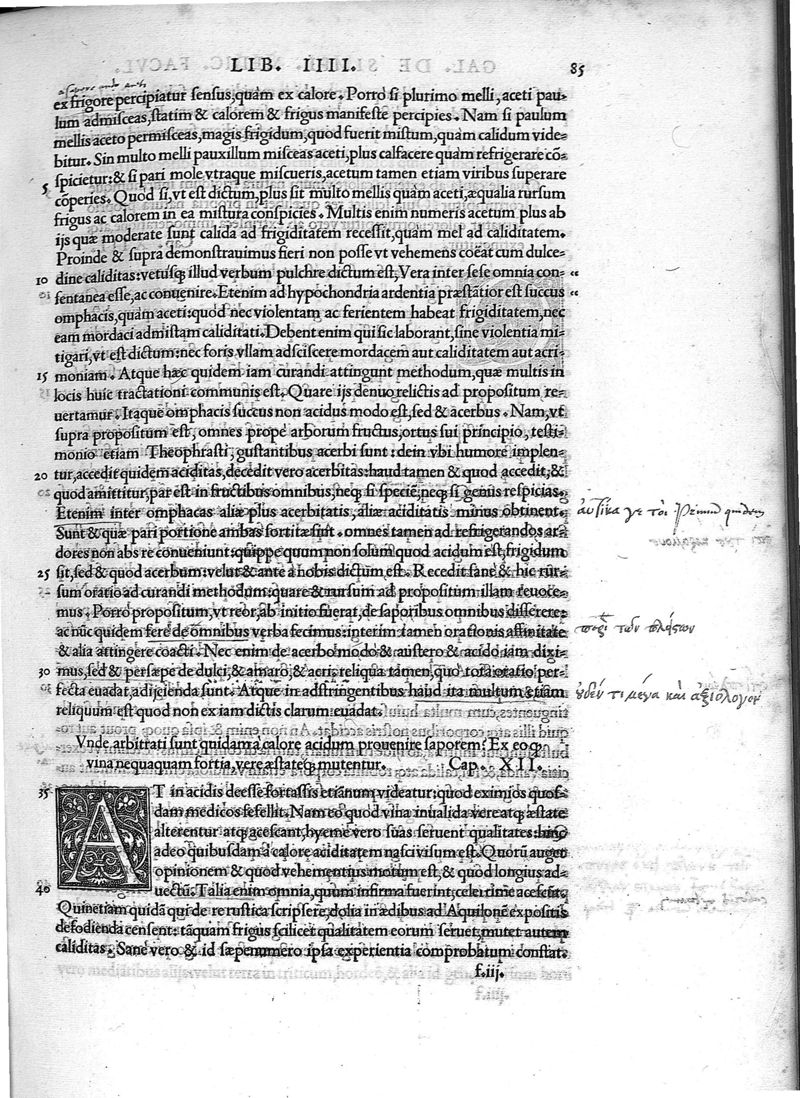 LIB. IIII. 85
ex frigore percipiatur sensus, quàm ex calore. Porro si plurimo melli, aceti pau-
lum admisceas, statim & calorem & frigus manifeste percipies. Nam si paulum
mellis aceto permisceas, magis frigidum, quod fuerit mistum, quàm calidum vide-
bitur. Sin multo melli pauxillum misceas aceti, plus calfacere quàm refrigerare cō-
5 spicietur: & si pari mole vtraque miscueris, acetum tamen etiam viribus superare
cōperies. Quod si, vt est dictum, plus sit multo mellis quàm aceti, æqualia rursum
frigus ac calorem in ea mistura conspicies. Multis enim numeris acetum plus ab
ijs quæ moderate sunt calida ad frigiditatem recessit, quàm mel ad caliditatem.
Proinde & supra demonstrauimus fieri non posse vt vehemens coëat cum dulce-
10 dine caliditas: vetusq; illud verbum pulchre dictum est, Vera inter sese omnia con- “
sentanea esse, ac conuenire. Etenim ad hypochondria ardentia præstatior est succus “
omphacis, quàm aceti: quod nec violentam ac ferientem habeat frigiditatem, nec
eam mordaci admistam caliditati. Debent enim qui sic laborant, sine violentia mi-
tigari, vt est dictum: nec foris vllam adsciscere mordacem aut caliditatem aut acri-
15 moniam. Atque hæc quidem iam curandi attingunt methodum, quæ multis in
locis huic tractationi communis est. Quare ijs denuo relictis ad propositum re-
uertamur. Itaque omphacis succus non acidus modo est, sed & acerbus. Nam, vt
supra propositum est, omnes prope arborum fructus, ortus sui principio, testi-
monio etiam Theophrasti, gustantibus acerbi sunt: dein vbi humore implen-
20 tur, accedit quidem aciditas, decedit vero acerbitas: haud tamen & quod accedit, &
quod amittitur, par est in fructibus omnibus, neq; si speciē, neq; si genus respicias.
Etenim inter omphacas aliæ plus acerbitatis, aliæ aciditatis minus obtinent. αὐτίκα γέ τοι
Sunt & quæ pari portione ambas sortitæ sint. omnes tamen ad refrigerandos ar-
dores non abs re conueniunt: quippe quum non solum quod acidum est, frigidum
25 sit, sed & quod acerbum: velut & ante à nobis dictum est. Recedit sane & hic rur-
sum oratio ad curandi methodum: quare & rursum ad propositum illam reuoce-
mus. Porro propositum, vt reor, ab initio fuerat, de saporibus omnibus disserere:
ac nūc quidem fere de omnibus verba fecimus: interim tamen orationis affinitate
& alia attingere coacti. Nec enim de acerbo modo & austero & acido iam dixi-
30 mus, sed & persæpe de dulci, & amaro, & acri, reliqua tamen, quo tota oratio per-
fecta euadat, adijcienda sunt. Atque in adstringentibus haud ita multum etiam οὐδέν τι μέγα καὶ ἀξιόλογον
reliquum est quod non ex iam dictis clarum euadat.
Vnde arbitrati sunt quidam à calore acidum prouenire saporem: Ex eo q;
vina nequaquam fortia, vere æstateq; mutentur. Cap. XII.
35 AT in acidis deesse fortassis etiānum videatur, quod eximios quos-
dam medicos fefellit. Nam eo quod vina inualida vere atq; æstate
alterentur atq; acescant, hyeme vero suas seruent qualitates: hinc
adeo quibusdam à calore aciditatem nasci visum est. Quorū auget
opinionem & quod vehementius motum est, & quod longius ad-
40 uectū. Talia enim omnia, quum infirma fuerint, celerrime acescūt.
Quinetiam quidā qui de re rustica scripsere, dolia in ædibus ad Aquilonē expositis
defodienda censent: tāquam frigus scilicet qualitatem eorum seruet, mutet autem
caliditas. Sane vero & id sæpenumero ipsa experientia comprobatum constat.
f.iij.